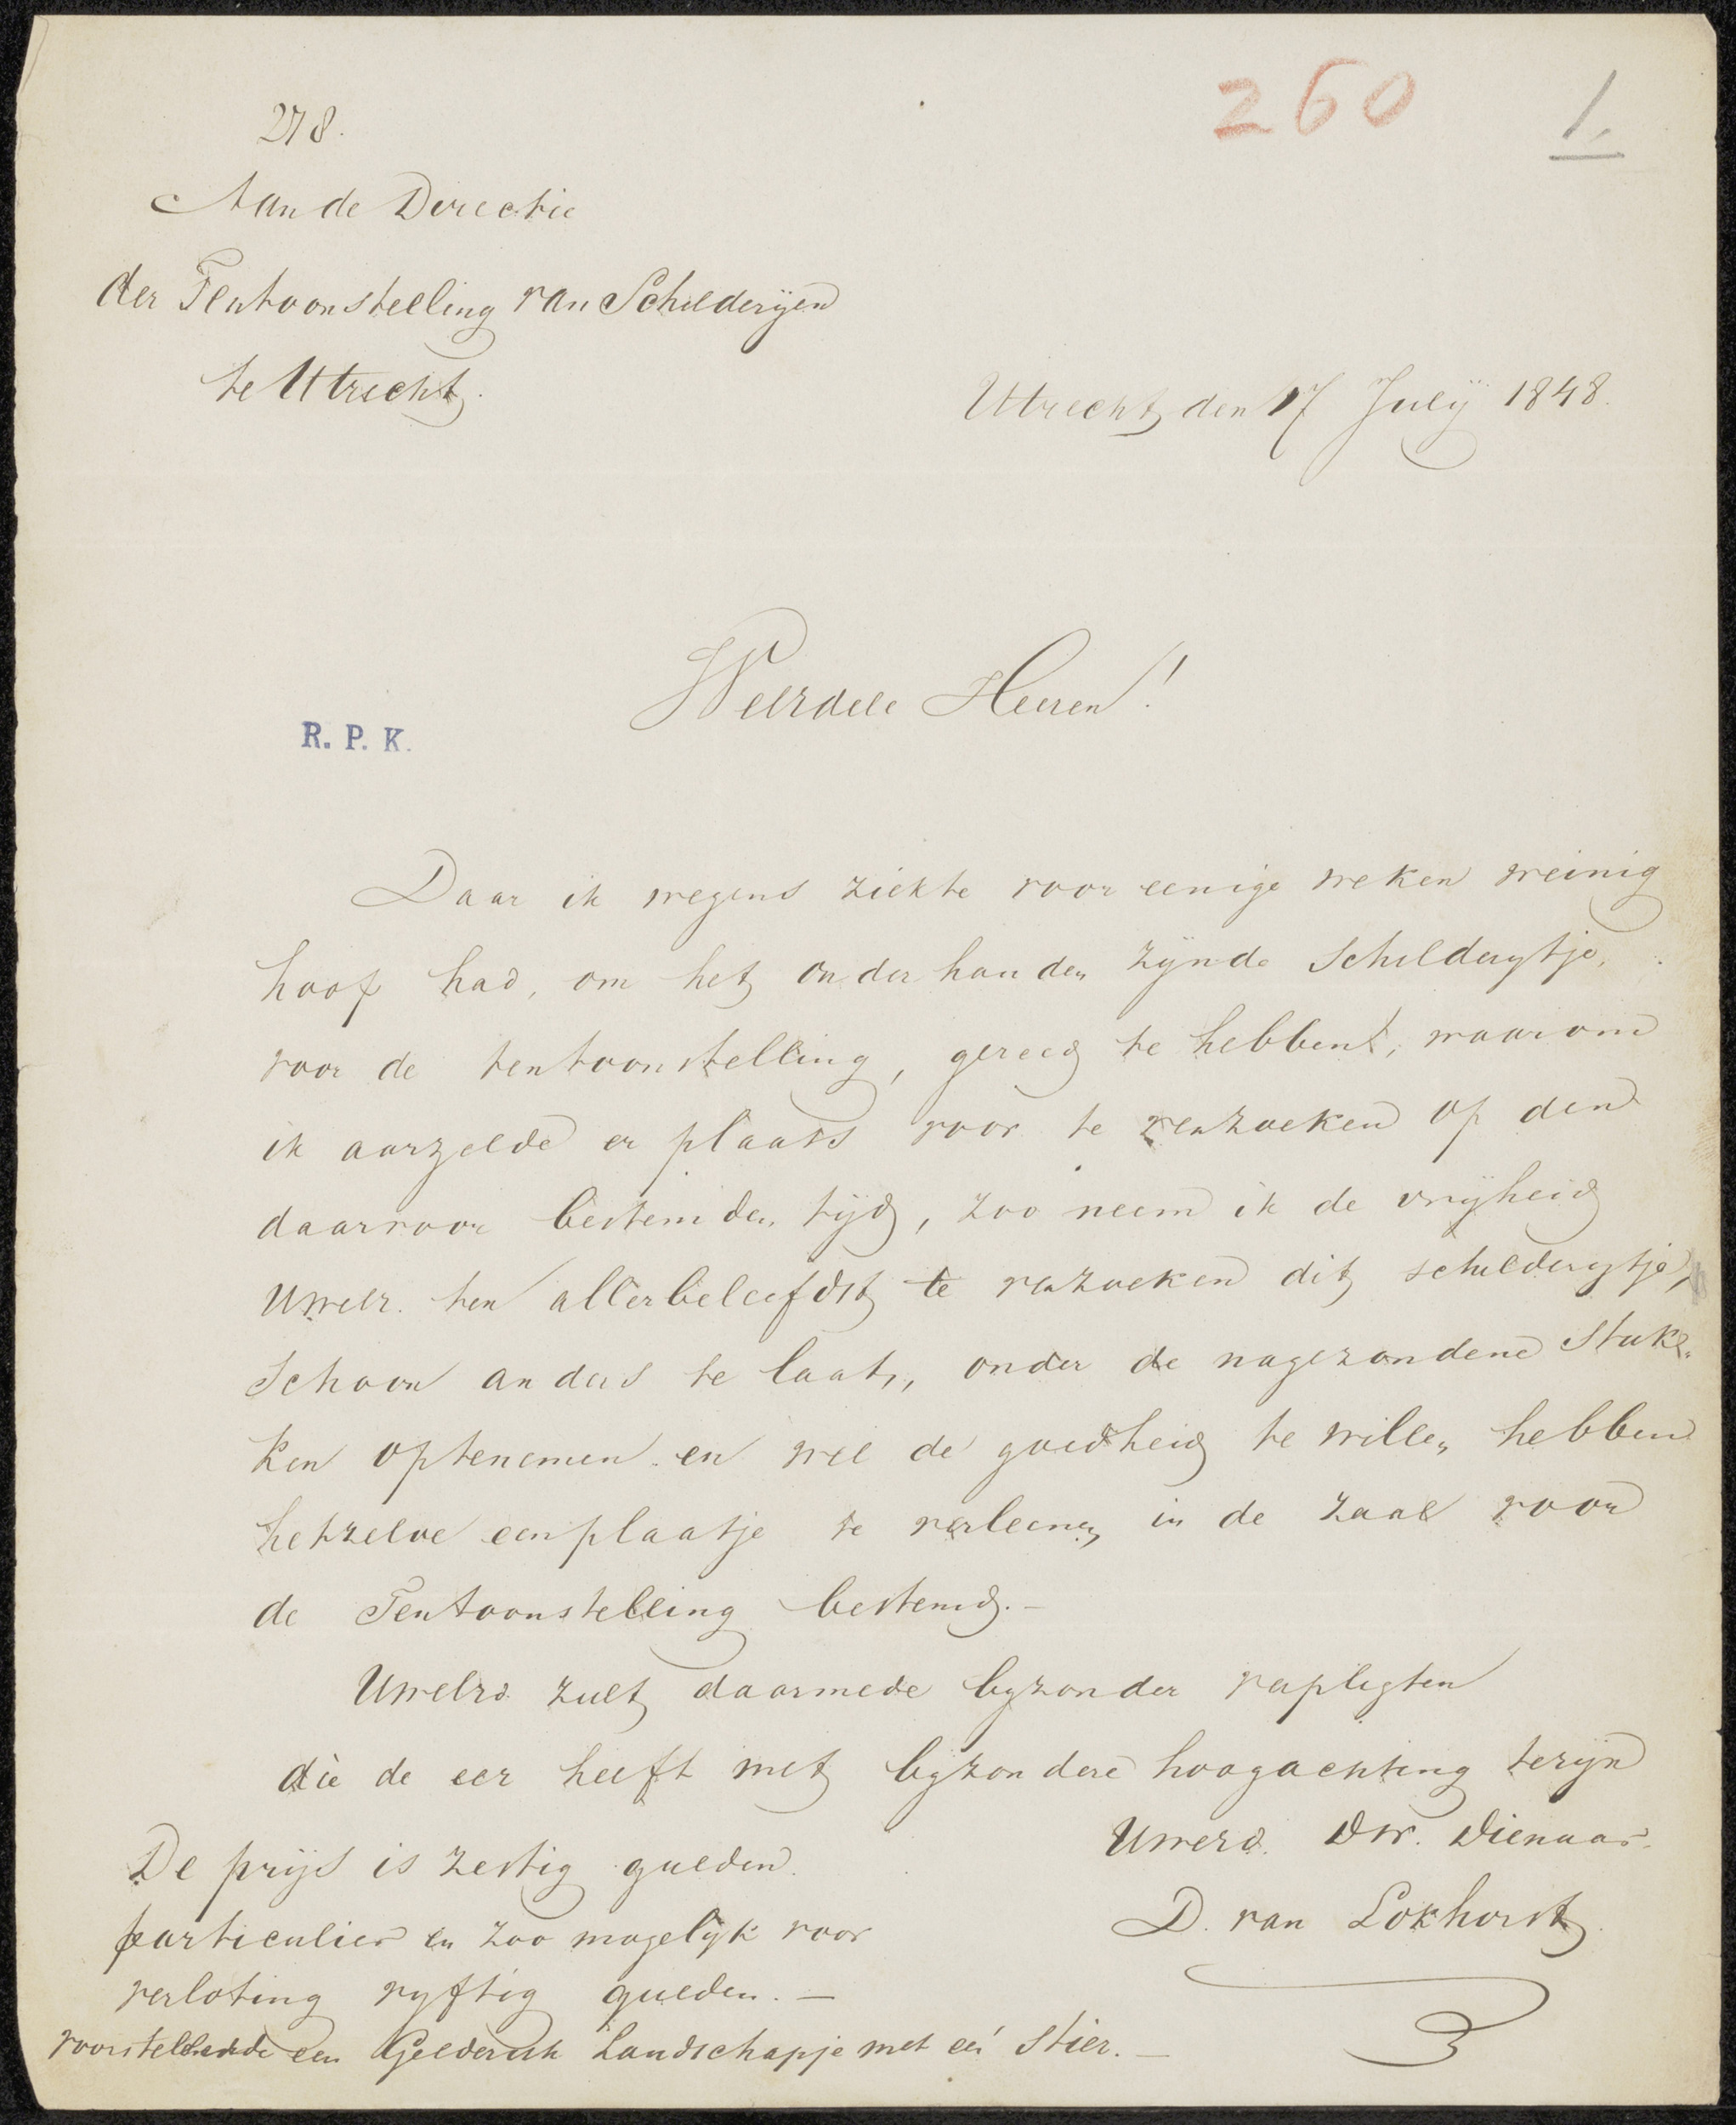 260
1.
278.
Aan de Directie
der Tentoonstelling van Schilderijen
te Utrecht.
Utrecht den 17 Julij 1848.
Weledele Heeren!
R. P. K.
Daar ik wegens ziekte voor eenige weken weinig
hoop had, om het onder handen zijnde Schilderijtje,
voor de tentoonstelling, gereed te hebben, waarom
ik aarzelde er plaats voor te verzoeken op den
daarvoor bestemden tijd, zoo neem ik de vrijheid
Uwelr. ten allerbeleefdst te verzoeken dit schilderijtje,
Schoon anders te laat, onder de nagezondene Stuk
ken optenemen en wel de goedheid te willen hebben
hetzelve een plaatje te verleenen in de zaal voor
de Tentoonstelling bestemd. —
Uwelrd. zult daarmede byzonder verpligten
die de eer heeft met byzondere hoogachting tezijn
Uwerd. Dw. Dienaar.
D. van Lokhorst.
De prijs is zestig gulden.
particulier en zoo mogelijk voor
verloting vyftig gulden. —
voorstellende een Geldersch Landschapje met een Stier. —